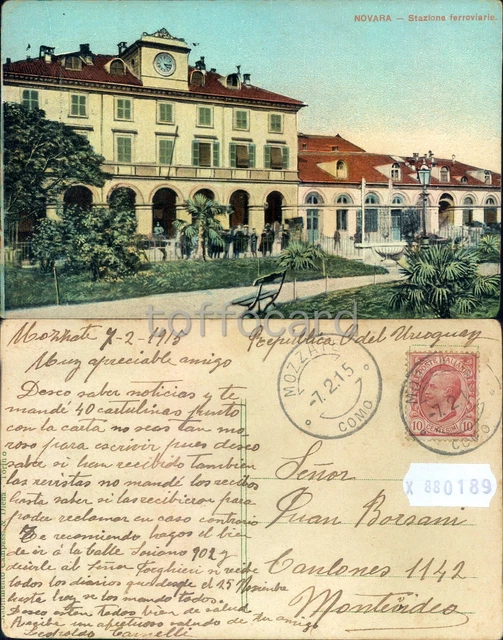 NOVARA — Stazione ferroviaria.
toffocard
Mozzate 7-2-1915
Republica O del Uroguay
Muy apreciable amigo
Deseo saber noticias y te
mandé 40 cartulinas punto
con la carta no seas tan mo
roso para escrivir pues deseo
saber si han recibido tambien
las revistas no mandé los recibos
hasta saber si las recibieron para
poder reclamar en caso contrario
Te recomiendo hagas el bien
de ir á la calle Soriano 902
decirle al Señor si recibe
todos los diarios que desde el 25 Noviembre
hasta hoy se los mando todos.
Deseo esten todos bien de salud
Reciba un afectuoso saludo de tu amigo
Leopoldo
MOZZATE
-7.2.15
COMO
POSTE ITALIANE
10 CENTESIMI 10
COMO
X 880189
Señor
Juan Borsani
Canlones 1142
Montevideo